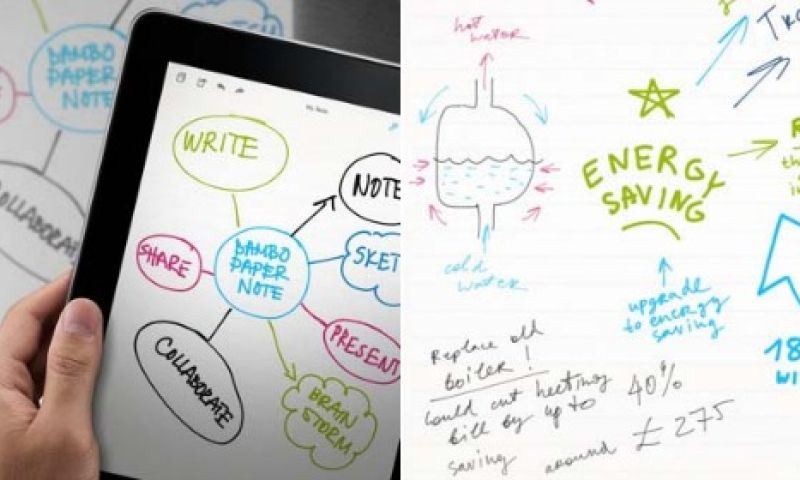 BAMBO
PAPER
NOTE
COLLABORATE
WRITE
NOTE
SHARE
BAMBO
PAPER
NOTE
SKET
PRESENT
COLLABORATE
BRAIN
STORM
hot
water
ENERGY
SAVING
cold
water
upgrade
to energy
saving
18
WI
Replace old
boiler!
Could cut heating
bill by up to 40%
saving around £275